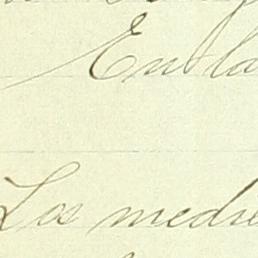 En la
Los medi